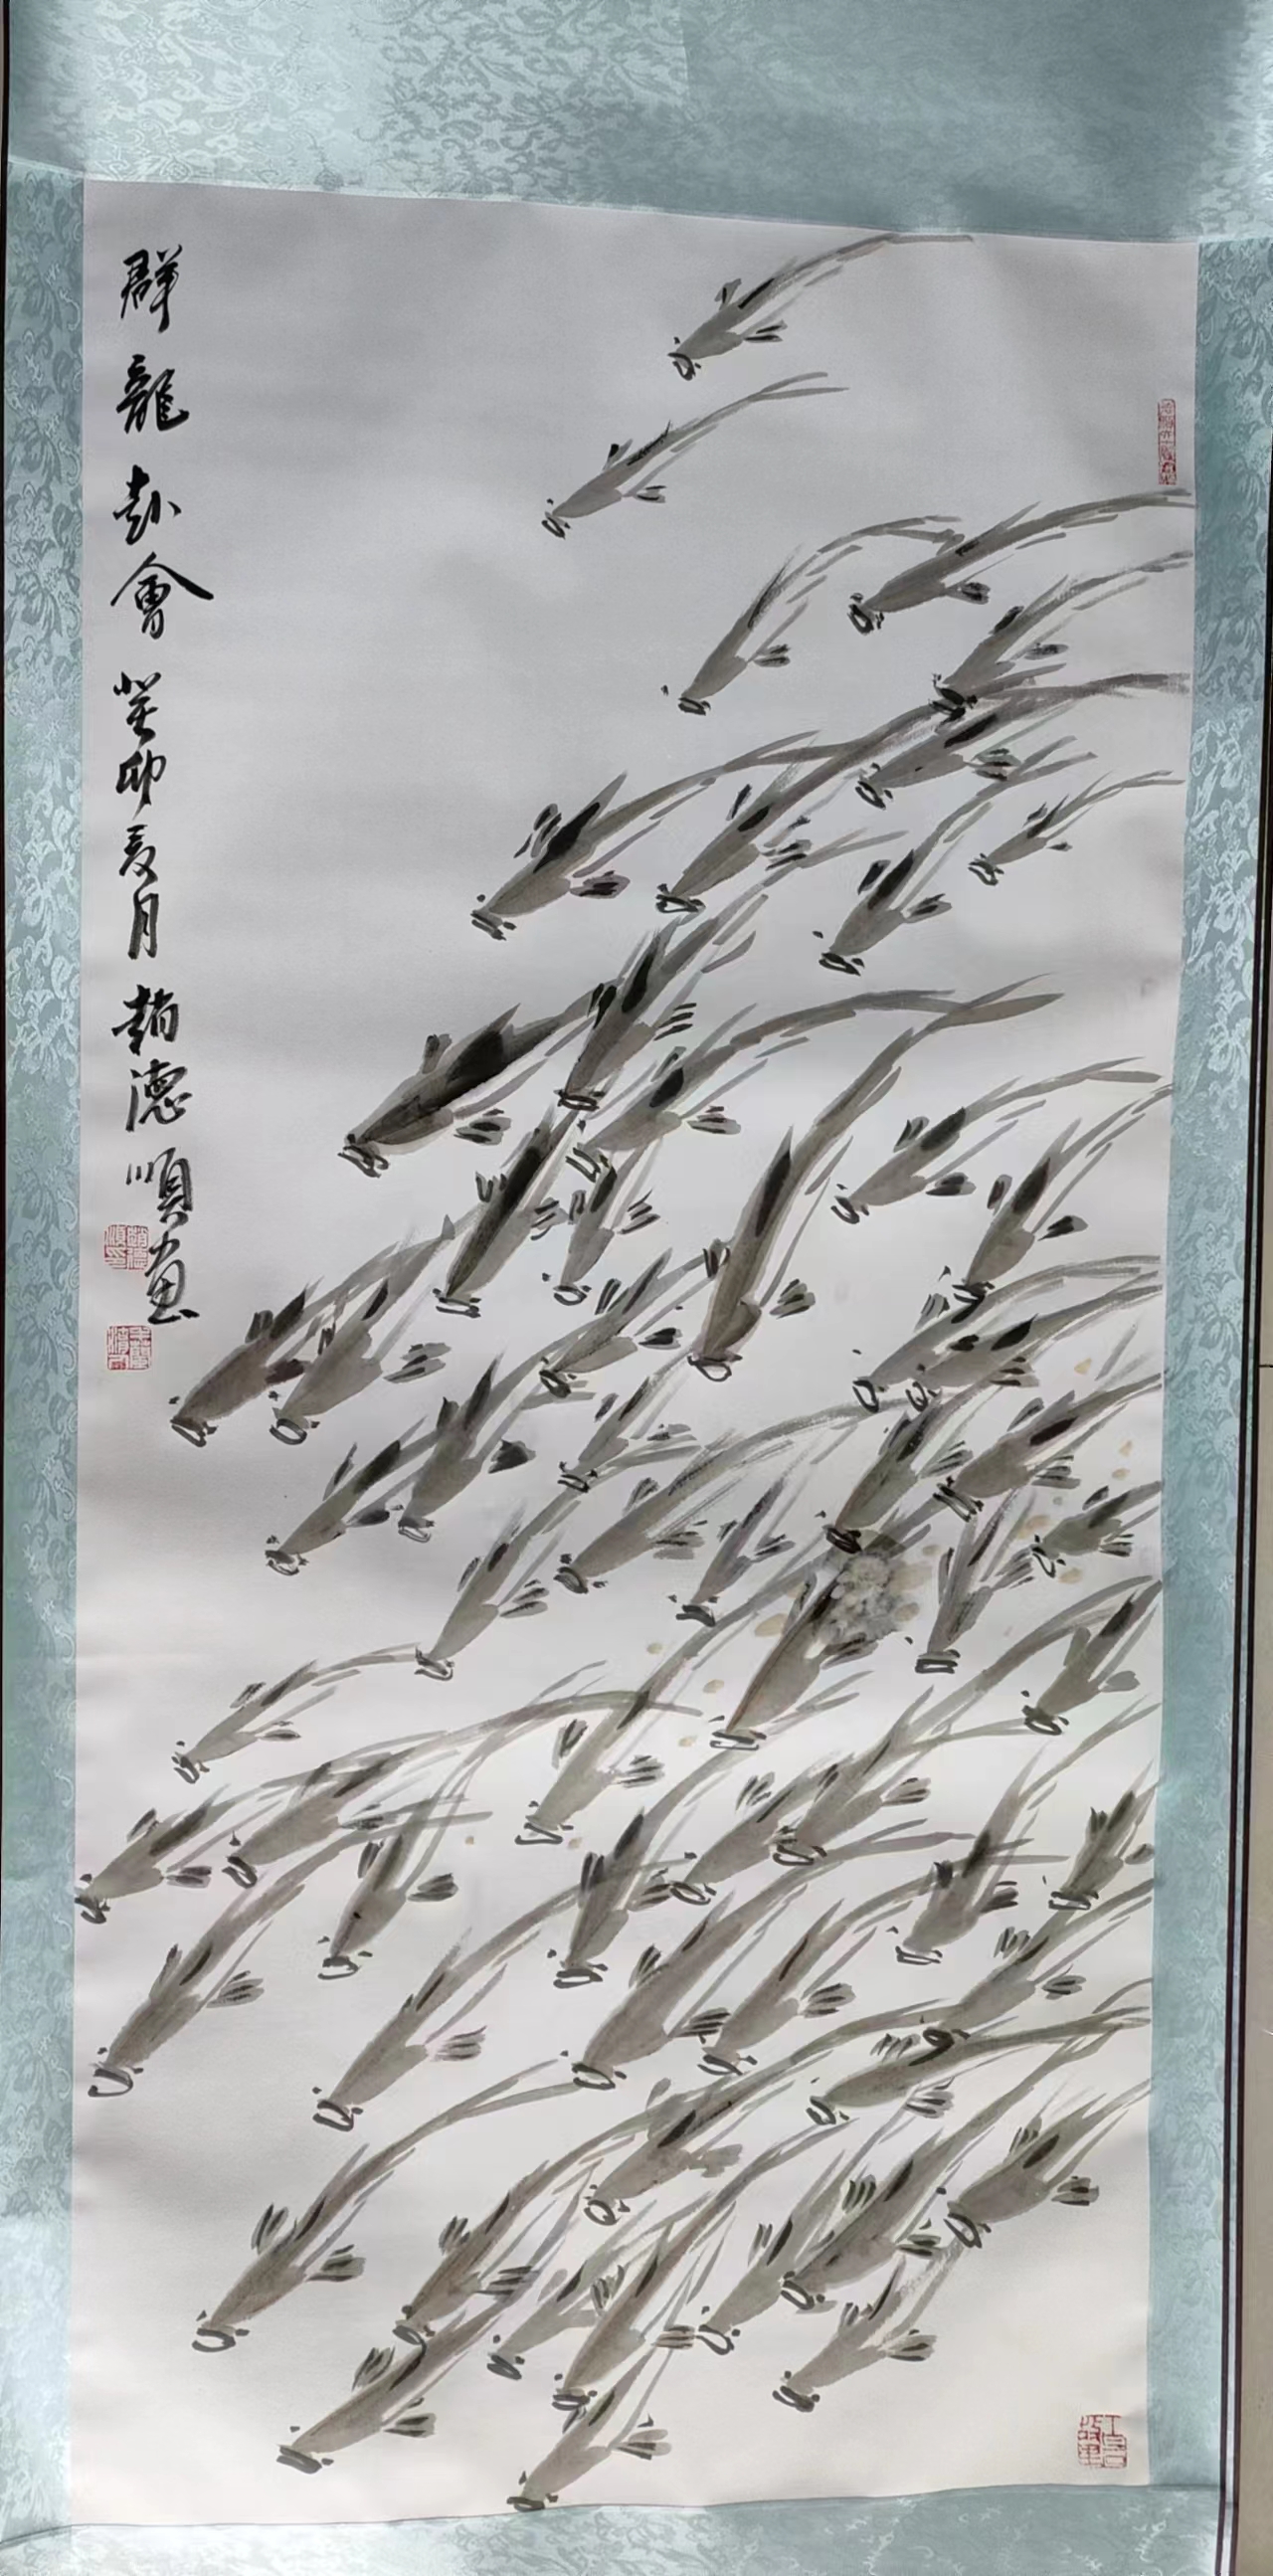 群龍赴會 癸卯夏月 趙德順画